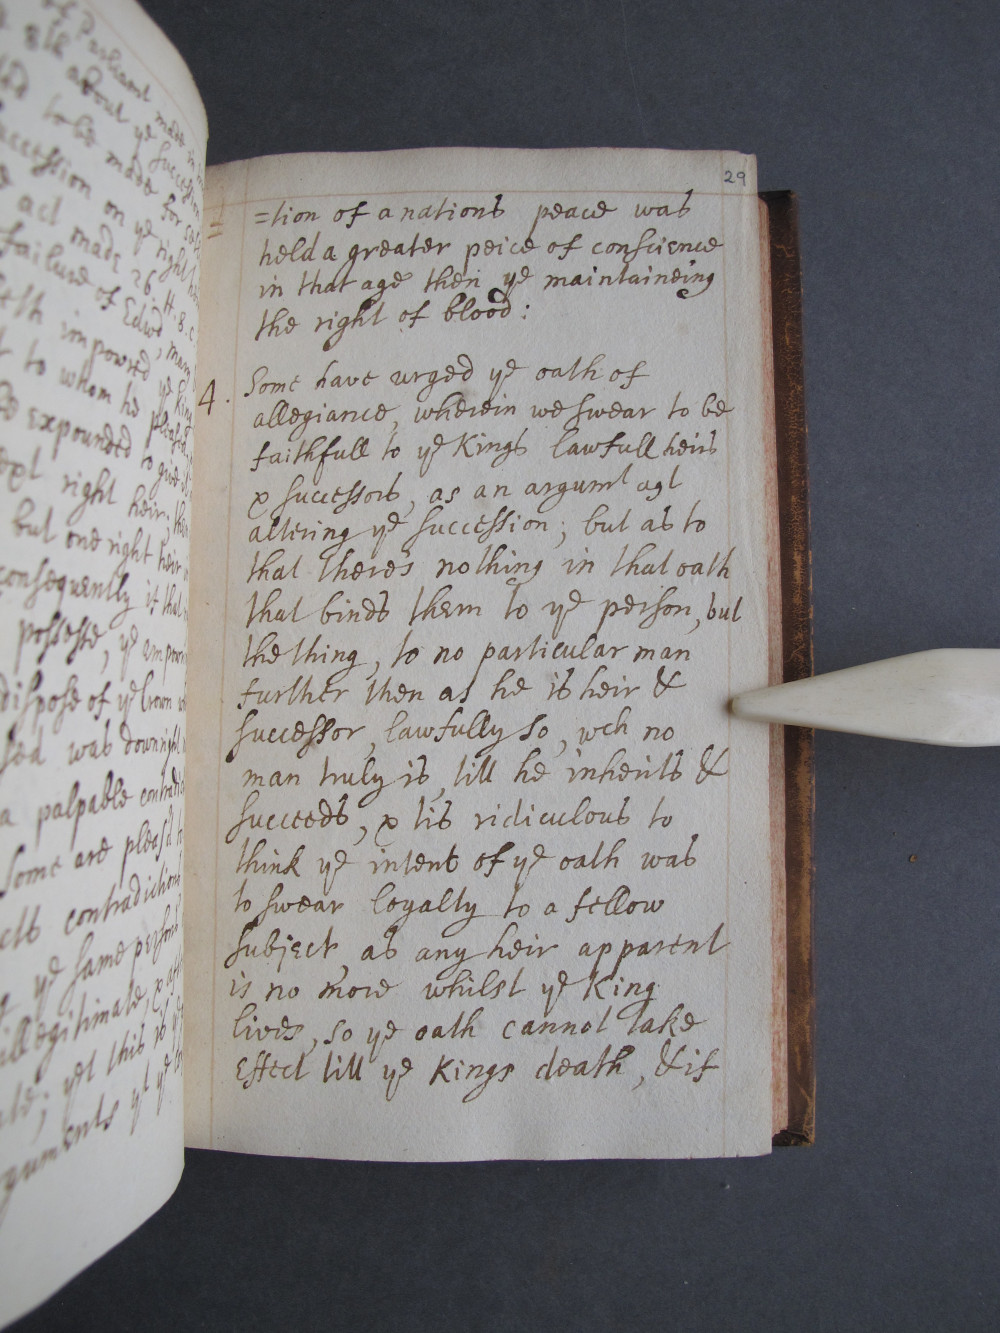 of Parliament made in
8th about ye succession
to be made for
succession on ye right
act made 26 H. 8. c
failure of Edwd, mary
impowred ye King
to whom he pleased
expounded to give
next right heir, then
but one right heir
consequently if that
possesse, ye
dispose of ye Crown
was downright
a palpable
some are pleas'd to
contradictions
ye same person
illegitimate, &
yet this is ye
arguments yt ye
29
=tion of a nations peace was
held a greater peice of conscience
in that age then ye maintaineing
the right of blood:
4. Some have urged ye oath of
allegiance, wherein we swear to be
faithfull to ye Kings lawfull heirs
& successors, as an argumt agt
altering ye succession; but as to
that theres nothing in that oath
that binds them to ye person, but
the thing, to no particular man
further then as he is heir &
successor, lawfully so, wch no
man truly is, till he inherits &
succeeds, & tis ridiculous to
think ye intent of ye oath was
to swear loyalty to a fellow
subject, as any heir apparent
is no more whilst ye King
lives, so ye oath cannot take
Effect till ye Kings death, & if